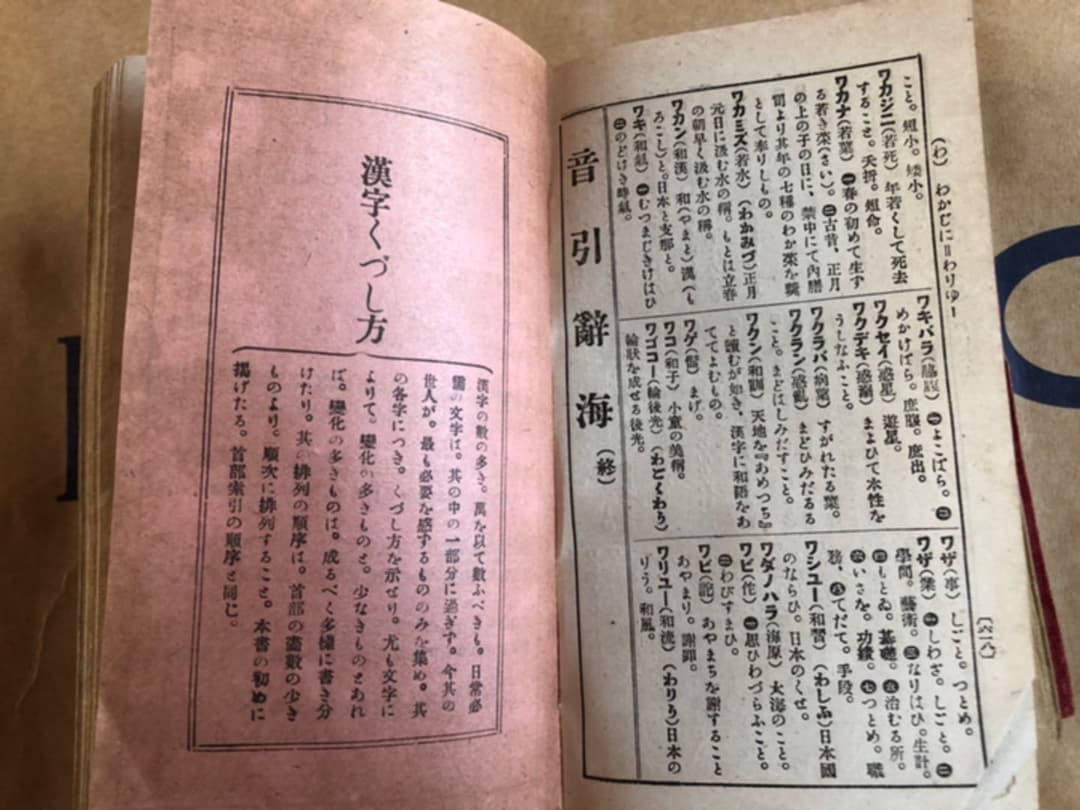 (わ) わかじに=わりゆー
〔六一八〕
こと。短小。矮小。
ワカジニ(若死) 年若くして死去
すること。夭折。短命。
ワカナ(若菜) ㊀春の初めて生ず
る若き菜(さい)。㊁古昔、正月
の上の子の日に、禁中にて内膳
司より其年の七種のわか菜を羹
として奉りしもの。
ワカミズ(若水) (わかみづ)正月
元日に汲む水の稱。もとは立春
の朝早く汲む水の稱。
ワカン(和漢) 和(やまと)漢(も
ろこし)と。日本と支那と。
ワキ(和氣) ㊀むつまじきけはひ
㊁のどけき時氣。
ワキバラ(脇腹) ㊀よこばら。㊁
めかけばら。庶腹。庶出。
ワクセイ(惑星) 遊星。
ワクデキ(惑溺) まよひて本性を
うしなふこと。
ワクラバ(病葉) すがれたる葉。
ワクラン(惑亂) まどひみだるる
こと。まどはしみだすこと。
ワクン(和訓) 天地を『あめつち』
と讀むが如き、漢字に和語をあ
ててよむもの。
ワゲ(髷) まげ。
ワコ(和子) 小童の美稱。
ワゴコー(輪後光) (わごくわう)
輪狀を成せる後光。
ワザ(事) しごと。つとめ。
ワザ(業) ㊀しわざ。しごと。㊁
學問。藝術。㊂なりはひ。生計。
㊃もとゐ。基礎。㊄治むる所。
㊅いさを。功績。㊆つとめ。職
務。㊇てだて。手段。
ワシユー(和習) (わしふ)日本國
のならひ。日本のくせ。
ワダノハラ(海原) 大海のこと。
ワビ(侘) ㊀思ひわづらふこと。
㊁わびずまひ。
ワビ(詫) あやまちを謝すること
あやまり。謝罪。
ワリユー(和流) (わりう)日本の
りう。和風。
音引辭海(終)
漢字くづし方
漢字の數の多き。萬を以て數ふべきも。日常必
需の文字は。其の中の一部分に過ぎず。今其の
世人が。最も必要を感ずるもののみを集め。其
の各字につき。くづし方を示せり。尤も文字に
よりて。變化の多きものと。少なきものとあれ
ば。變化の多きものは。成るべく多樣に書き分
けたり。其の排列の順序は。首部の畫數の少き
ものより。順次に排列すること。本書の初めに
揭げたる。首部索引の順序と同じ。